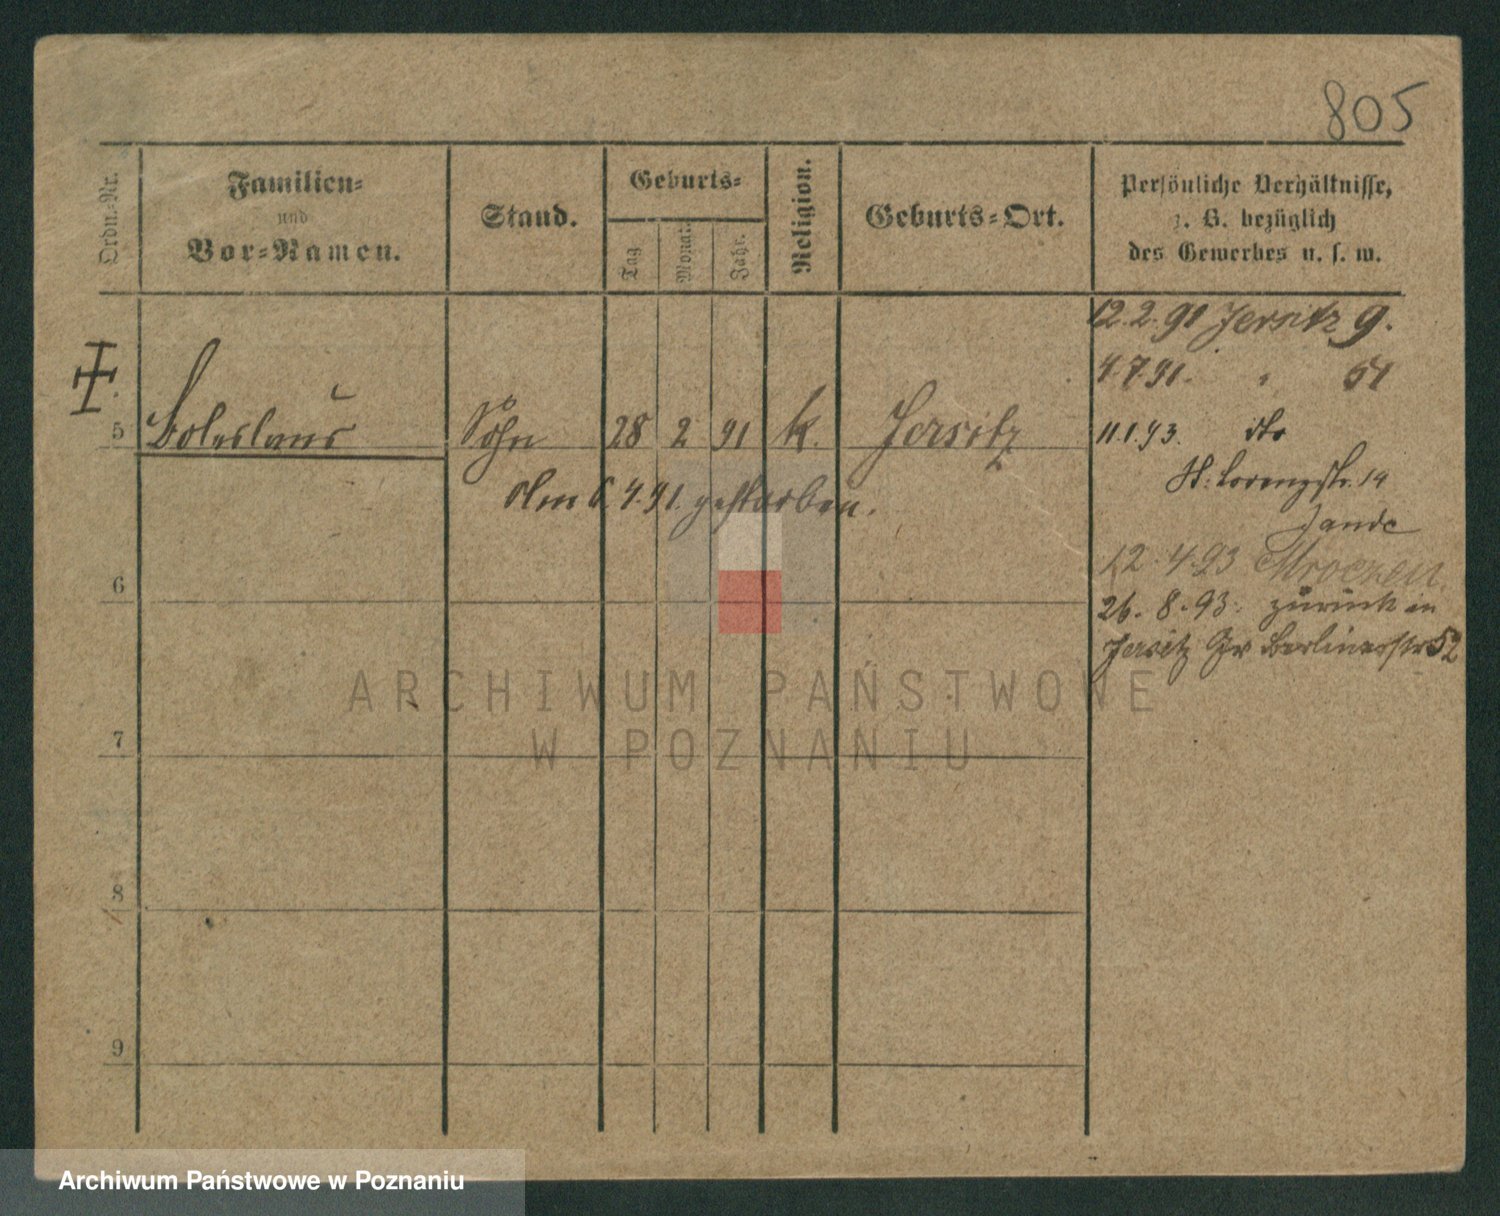 805
Ordn.-Nr.
Familien-
und
Vor-Namen.
Stand.
Geburts-
Tag
Monat
Jahr.
Religion.
Geburts-Ort.
Persönliche Verhältnisse,
z. B. bezüglich
des Gewerbes u. s. w.
12.2.91 Jersitz 9.
4.7.91. " 51
5 Boleslaus Sohn 28 2 91 k. Jersitz
11.1.93. dto
Am 6.4.91. gestorben.
St. Lorenzstr. 14
Jande
12.4.93
6
26.8.93. zurück in
Jersitz Gr Berlinerstr 52
ARCHIWUM PAŃSTWOWE
W POZNANIU
7
8
9
Archiwum Państwowe w Poznaniu